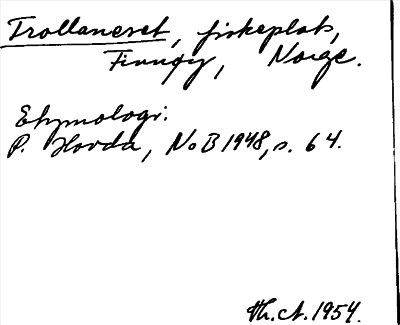 Trollaneset, fiskeplats,
Finnøy, Norge.
Etymologi:
P. Hovda, NoB 1948, s. 64.
Th. A. 1954.